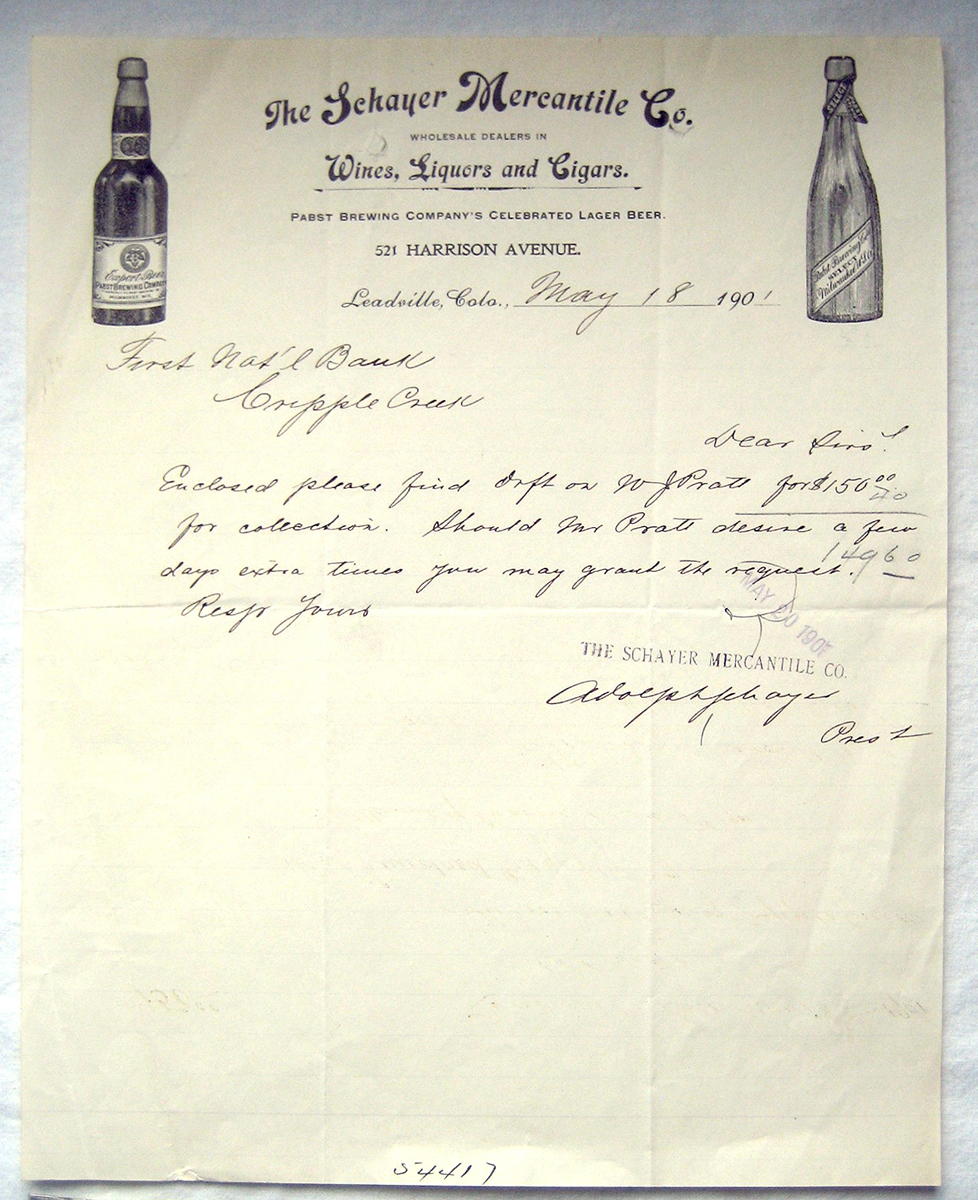 The Schayer Mercantile Co.
WHOLESALE DEALERS IN
Wines, Liquors and Cigars.
PABST BREWING COMPANY'S CELEBRATED LAGER BEER.
521 HARRISON AVENUE.
Leadville, Colo., May 18 1901
Export Beer
PABST BREWING COMPANY
MILWAUKEE WIS.
SELECT
Pabst Brewing Co.
SELECT
Milwaukee U.S.A.
First Nat'l Bank
Cripple Creek
Dear Sirs!
Enclosed please find drft on W J Pratt for $150 00
40
for collection. Should Mr Pratt desire a few
149 60
days extra times you may grant the request.
Resp Yours
MAY 20 1901
THE SCHAYER MERCANTILE CO.
Adolph Schayer
Prest
54417